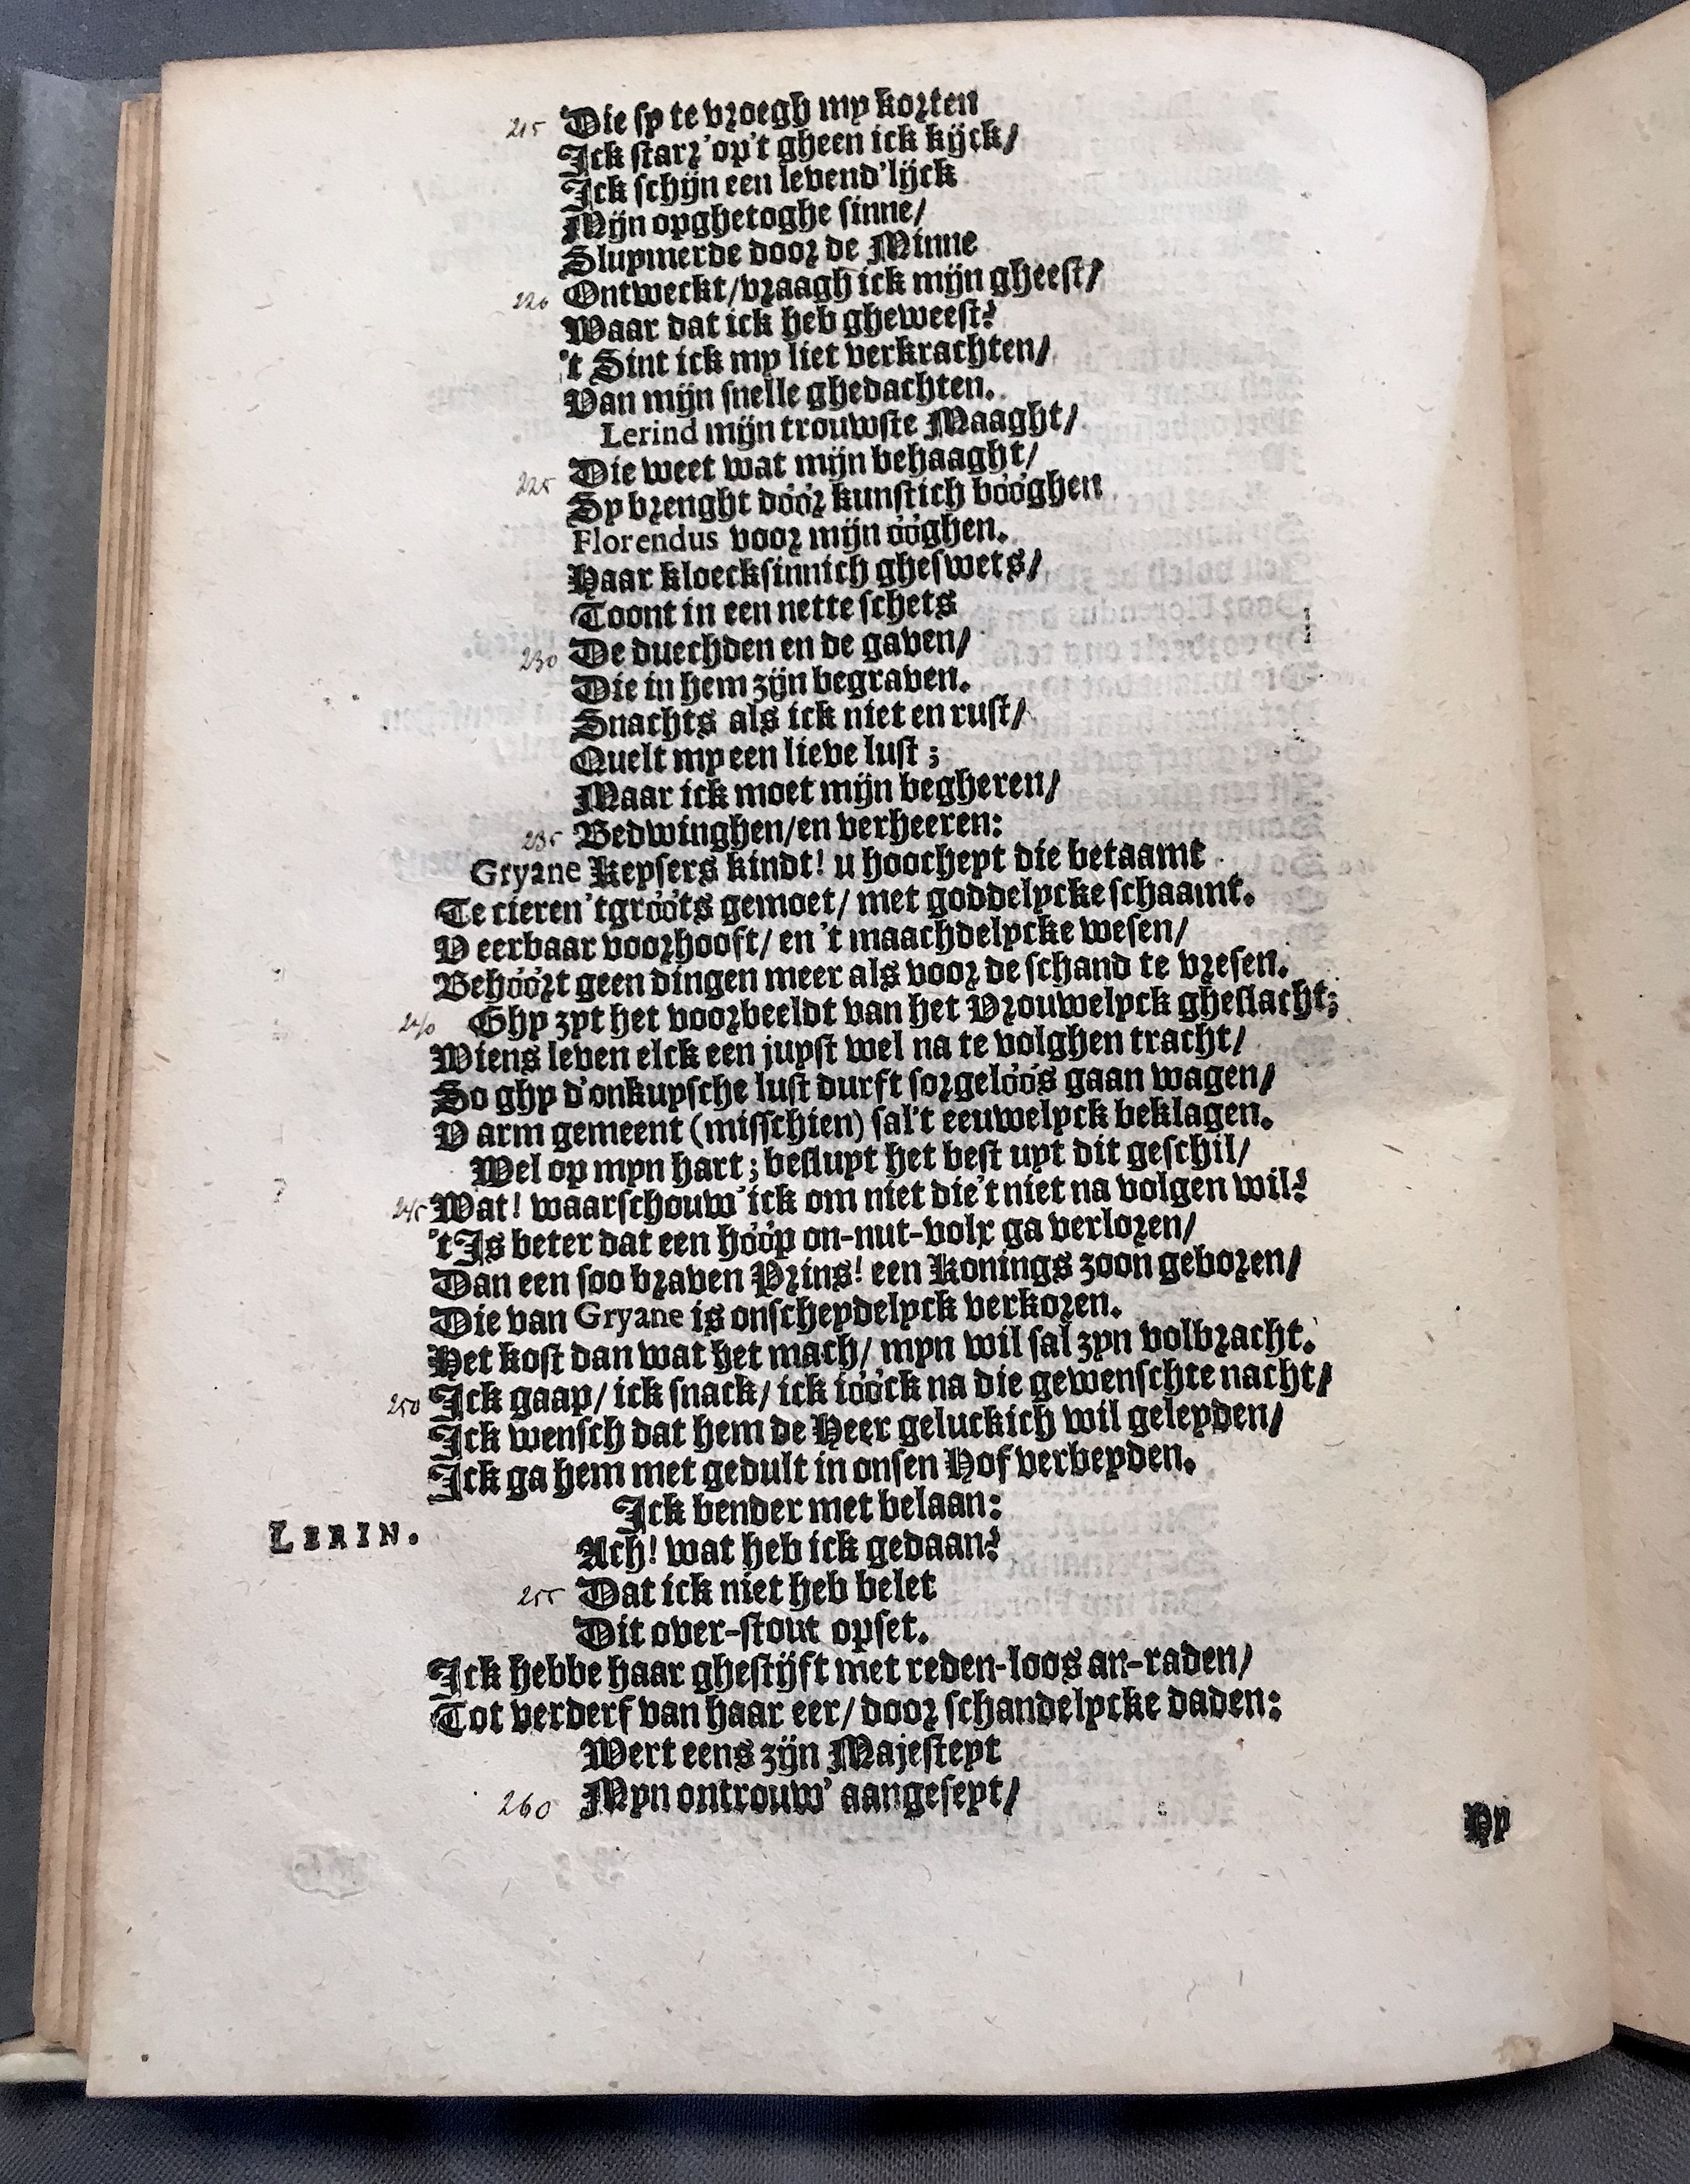 215 Die sy te vroegh my korten
Ick starr'op't gheen ick kijck/
Ick schijn een levend'lijck
Mijn opghetoghe sinne/
Sluymerde door de Minne
220 Ontweckt/vraagh ick mijn gheest/
Waar dat ick heb gheweest?
't Sint ick my liet verkrachten/
Van mijn snelle ghedachten.
Lerind mijn trouwste Maaght/
225 Die weet wat mijn behaaght/
Sy brenght dóór kunstich bóóghen
Florendus voor mijn óóghen.
Haar kloecksinnich gheswets/
Toont in een nette schets
230 De duechden en de gaven/
Die in hem zijn begraven.
Snachts als ick niet en rust/
Quelt my een lieve lust;
Maar ick moet mijn begheren/
235 Bedwinghen/en verheeren:
Gryane Keysers kindt! u hoocheyt die betaamt
Te cieren 'tgróóts gemoet/ met goddelycke schaamt.
V eerbaar voorhooft/ en 't maachdelycke wesen/
Behóórt geen dingen meer als voor de schand te vresen.
240 Ghy zyt het voorbeeldt van het Vrouwelyck gheslacht;
Wiens leven elck een juyst wel na te volghen tracht/
So ghy d'onkuysche lust durft sorgelóós gaan wagen/
V arm gemeent (misschien) sal't eeuwelyck beklagen.
Wel op myn hart; besluyt het best uyt dit geschil/
245 Wat! waarschouw'ick om niet die't niet na volgen wil?
't Is beter dat een hóóp on-nut-volx ga verloren/
Dan een soo braven Prins! een Konings zoon geboren/
Die van Gryane is onscheydelyck verkoren.
Het kost dan wat het mach/ myn wil sal zyn volbracht.
250 Ick gaap/ ick snack/ ick ióóck na die gewenschte nacht/
Ick wensch dat hem de Heer geluckich wil geleyden/
Ick ga hem met gedult in onsen Hof verbeyden.
LERIN. Ick bender met belaan:
Ach! wat heb ick gedaan?
255 Dat ick niet heb belet
Dit over-stout opset.
Ick hebbe haar ghestijft met reden-loos an-raden/
Tot verderf van haar eer/ door schandelycke daden:
Wert eens zijn Majesteyt
260 Myn ontrouw' aangeseyt/
Hy